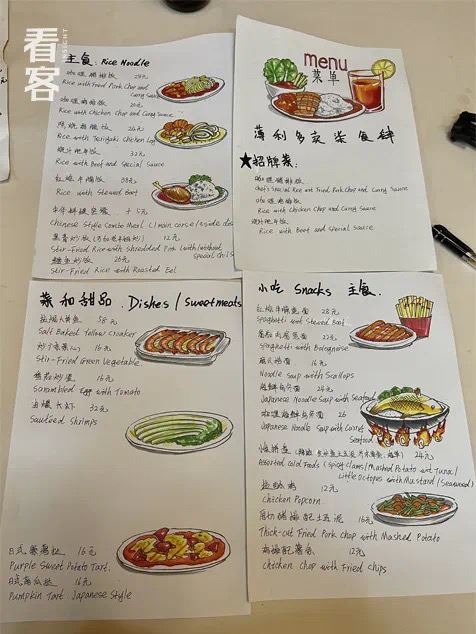 看客
INSIGHT
主食: Rice Noodle
咖喱猪排饭 29元
Rice with Fried Pork Chop and
Curry Sauce
咖喱鸡排饭 20元
Rice with Chicken Chop and Curry Sauce
照烧鸡腿饭 26元
Rice with Teriyaki Chicken Leg
32元
Rice with Beef and Special Sauce
红烧牛腩饭 38元
Rice with Stewed Beef
+ 5元
Chinese Style Combo Meal (1 main corse/1 side dish
12元
Stir-Fried Rice with Shredded Pork (with/without
special Chili
鳗鱼炒饭 26元
Stir-Fried Rice with Roasted Eel
menu
菜单
薄利多卖
★招牌菜:
咖喱猪排饭
Chef's Special Rice wit Fried Pork Chop and Curry Sauce
咖喱鸡排饭
Rice with Chicken Chop and Curry Sauce
Rice with Beef and Special Sauce
菜和甜品. Dishes / Sweetmeats
58元
Salt Baked Yellow Croaker
16元
Stir-Fried Green Vegetable
番茄炒蛋 16元
Scrambled Egg with Tomato
油爆大虾 32元
Sauteed Shrimps
日式紫薯挞 16元
Purple Sweet Potato Tart.
日式南瓜挞 16元
Pumpkin Tart Japanese Style
小吃 Snacks 主食.
28元
Spaghetti wit Stewed Beef
22元
Spaghetti with Bolognese
16元
Noodle Soup with Scallops
海鲜乌冬面 24元
Japanese Noodle Soup with Seafood
咖喱海鲜乌冬面 26
Japanese Noodle Soup with Curry
Seafood
24元
Assorted Cold Foods (Spicy Clams/Mashed Potato wit Tuna/
Little Octopus with Mustard/Seaweed)
12元
Chicken Popcorn
厚切猪排配土豆泥 16元
Thick-cut Fried Pork Chop with Mashed Potato
鸡排配薯条 12元
Chicken Chop with Fried Chips